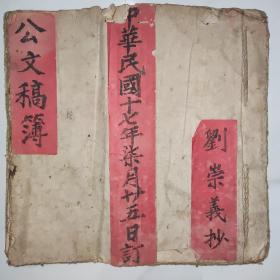 公文稿簿
中華民國十七年柒月廿五日訂
劉崇義抄